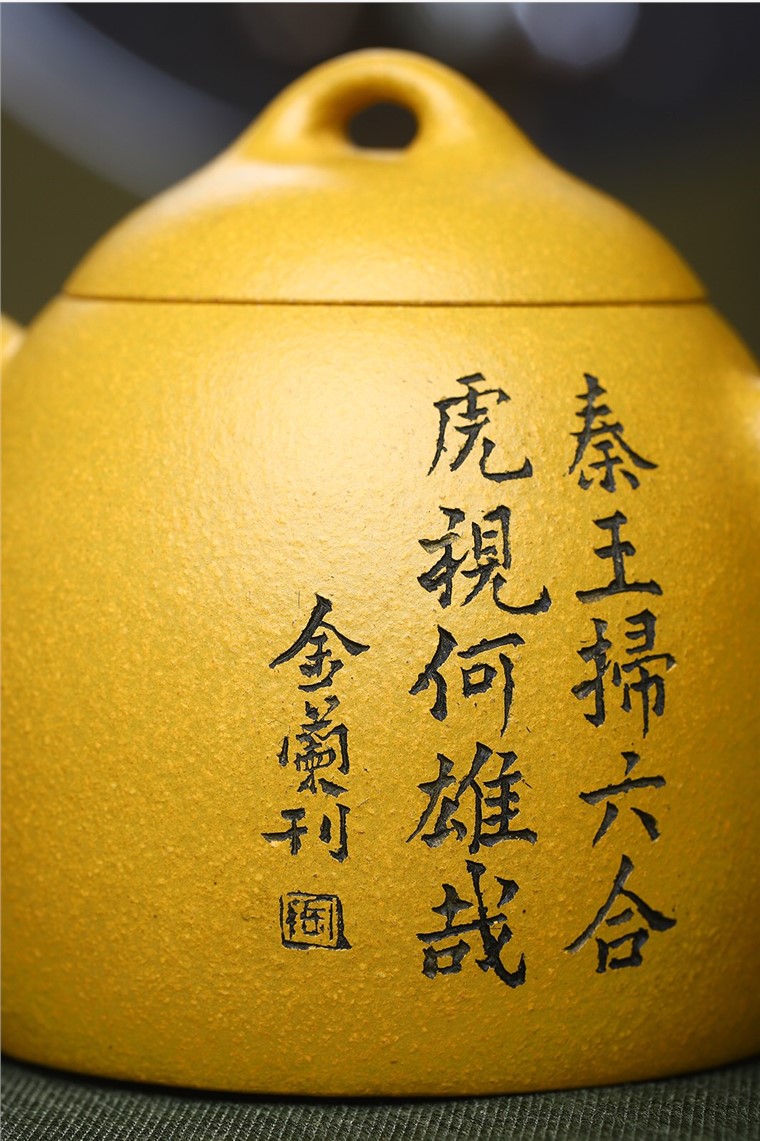 秦王掃六合
虎視何雄哉
金蘭刊